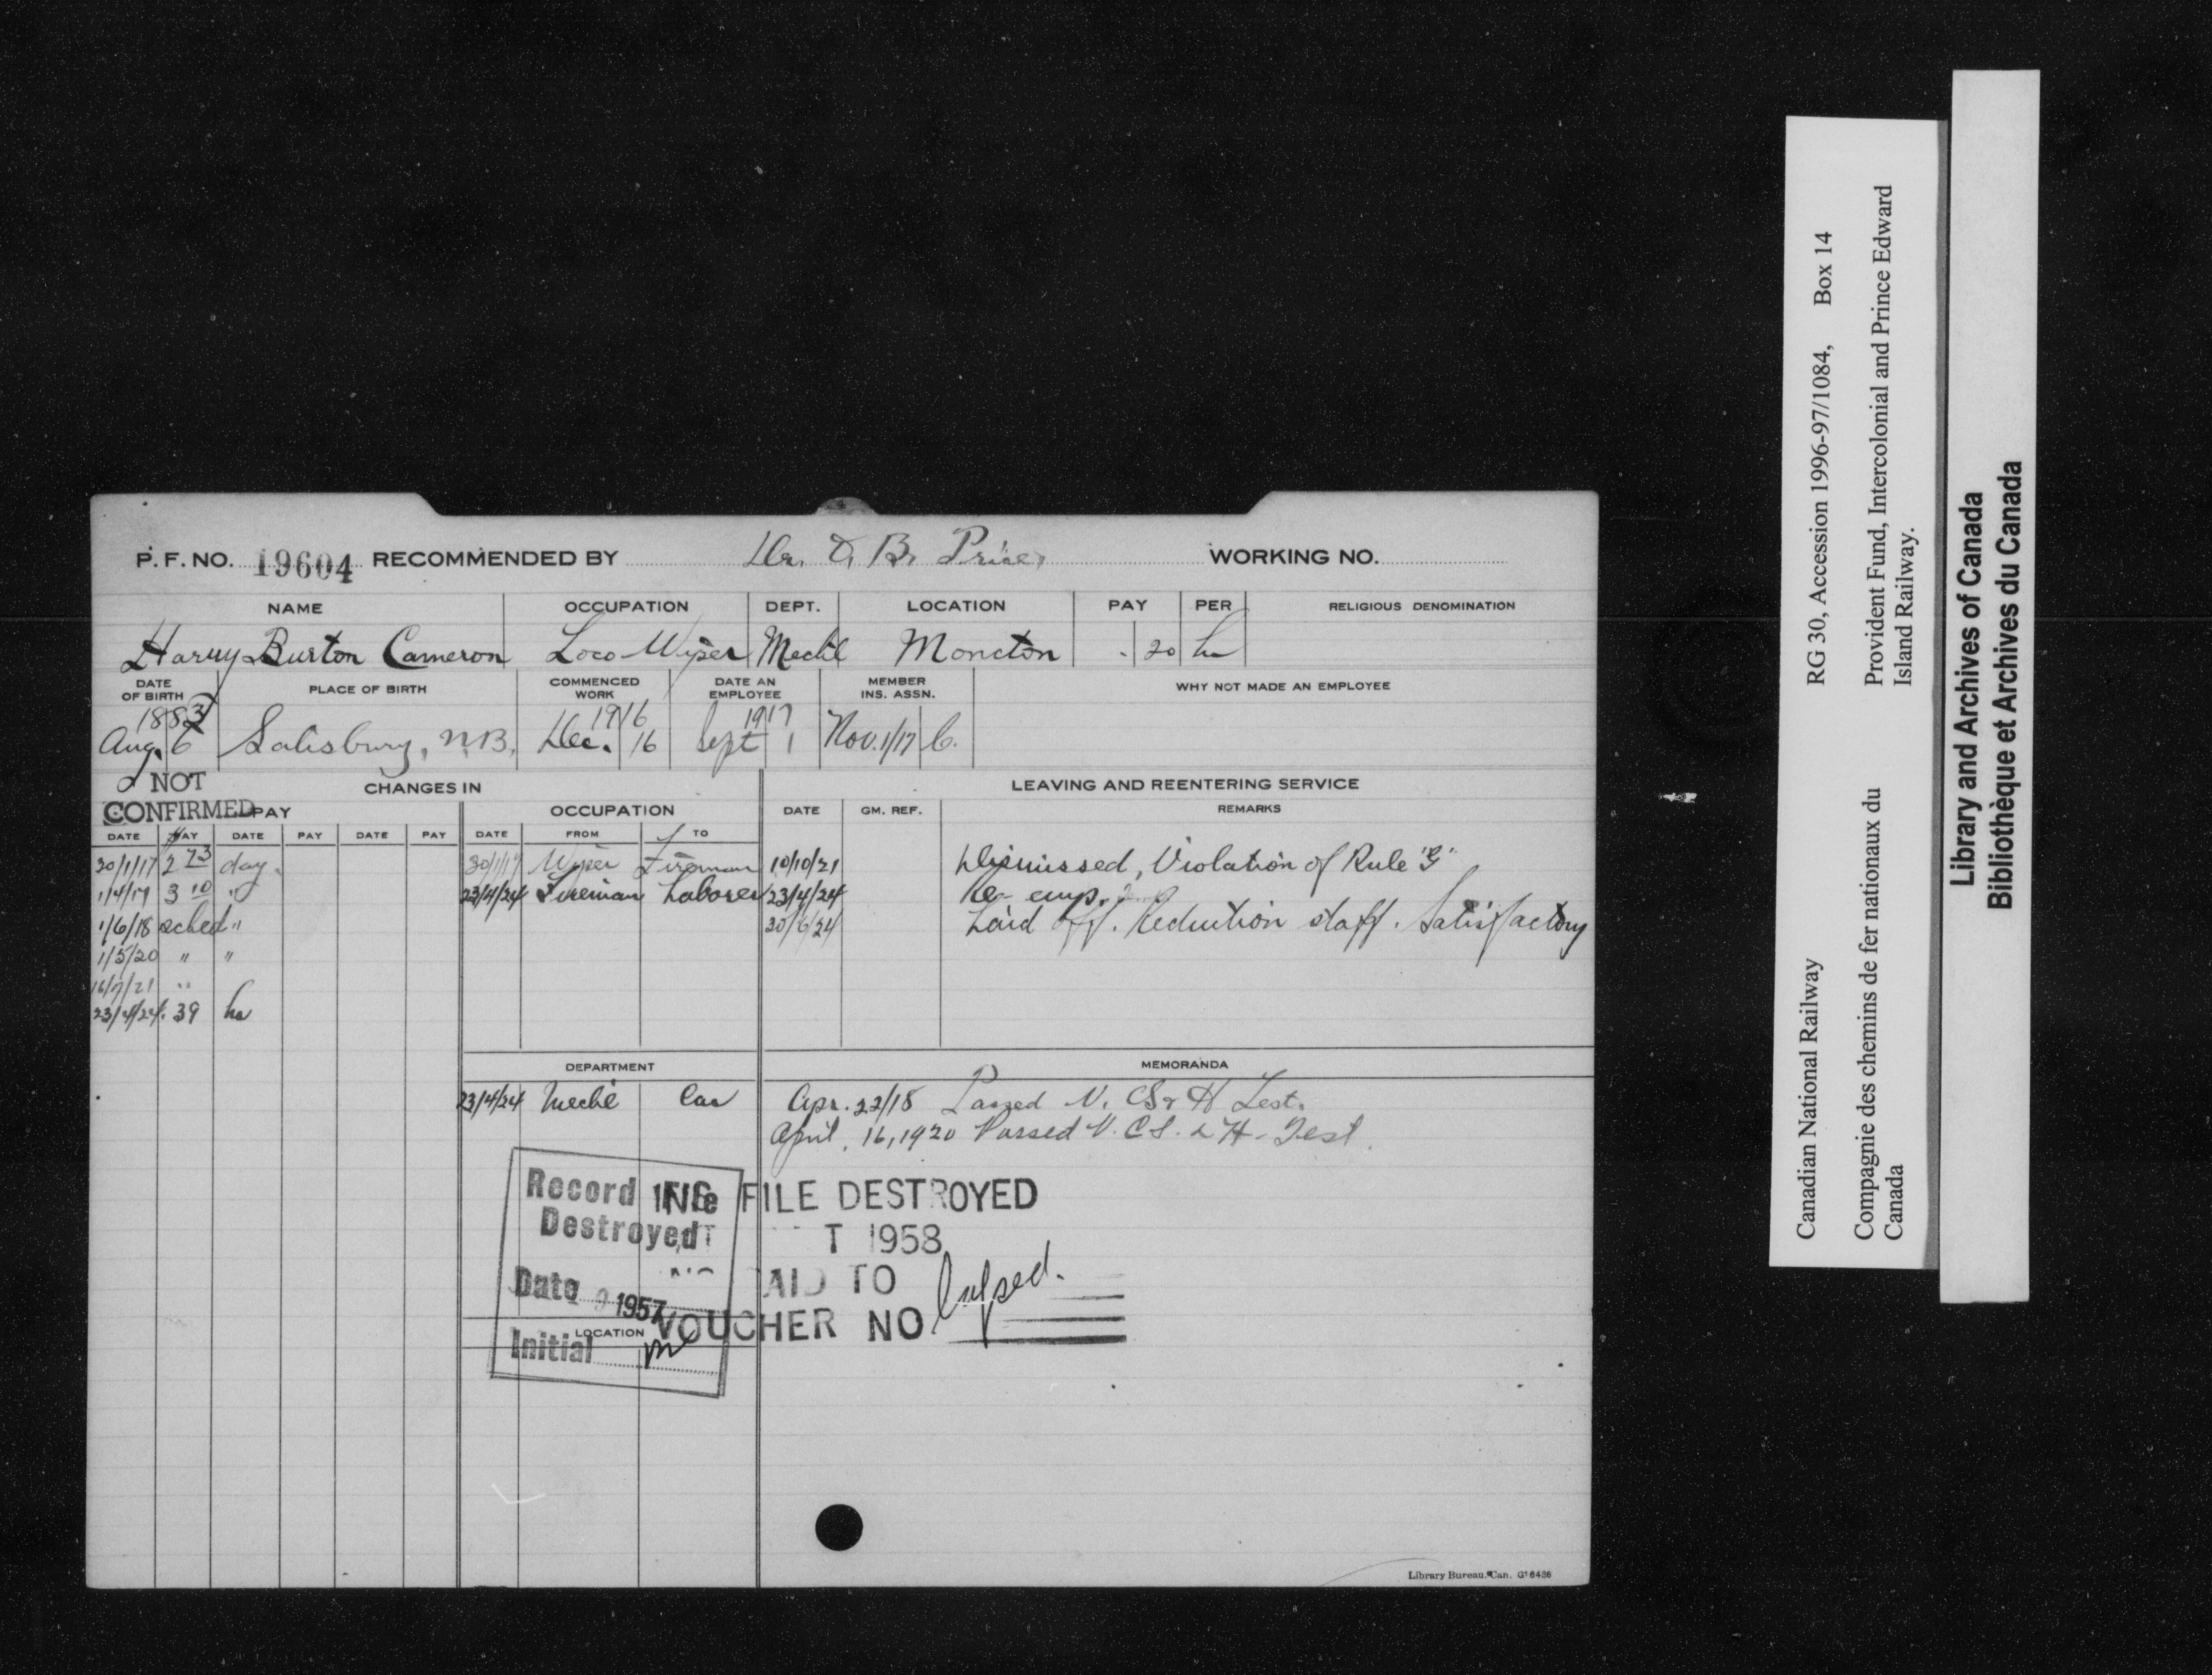 P. F. NO. 19604 RECOMMENDED BY Dr. O. B. Price, WORKING NO.
NAME OCCUPATION DEPT. LOCATION PAY PER RELIGIOUS DENOMINATION
Harry Burton Cameron Loco Wiper Mechl Moncton .20 hr
DATE OF BIRTH PLACE OF BIRTH COMMENCED WORK DATE AN EMPLOYEE MEMBER INS. ASSN. WHY NOT MADE AN EMPLOYEE
1883 1916 1917
Aug. 6 Salisbury, N.B. Dec. 16 Sept 1 Nov. 1/17 C.
NOT CHANGES IN LEAVING AND REENTERING SERVICE
CONFIRMED PAY OCCUPATION DATE GM. REF. REMARKS
DATE PAY DATE PAY DATE PAY DATE FROM TO
30/1/17 2 73 day. 30/1/17 Wiper Fireman 10/10/21 Dismissed, Violation of Rule "G"
1/4/17 3 10 " 23/4/24 Fireman Laborer 23/4/24 Re-emp.
1/6/18 sched " 30/6/24 Laid off. Reduction staff. Satisfactory
1/5/20 " "
16/7/21 "
23/4/24 .39 hr
DEPARTMENT MEMORANDA
23/4/24 Mechl Car Apr. 22/18 Passed V. CS & H Test.
April, 16, 1920 Passed V. C S. & H- Test.
Record File
Destroyed
Date 9 1957
Initial
FILE DESTROYED
T 1958
AID TO
VOUCHER NO lapsed.
LOCATION
Library Bureau. Can. G16436
Canadian National Railway RG 30, Accession 1996-97/1084, Box 14
Compagnie des chemins de fer nationaux du Canada
Provident Fund, Intercolonial and Prince Edward Island Railway.
Library and Archives of Canada
Bibliothèque et Archives du Canada